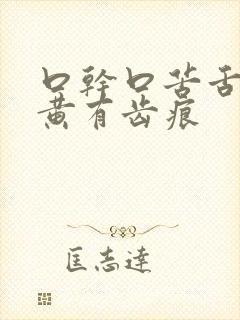 口幹口苦舌
黄有齿痕
匡志達